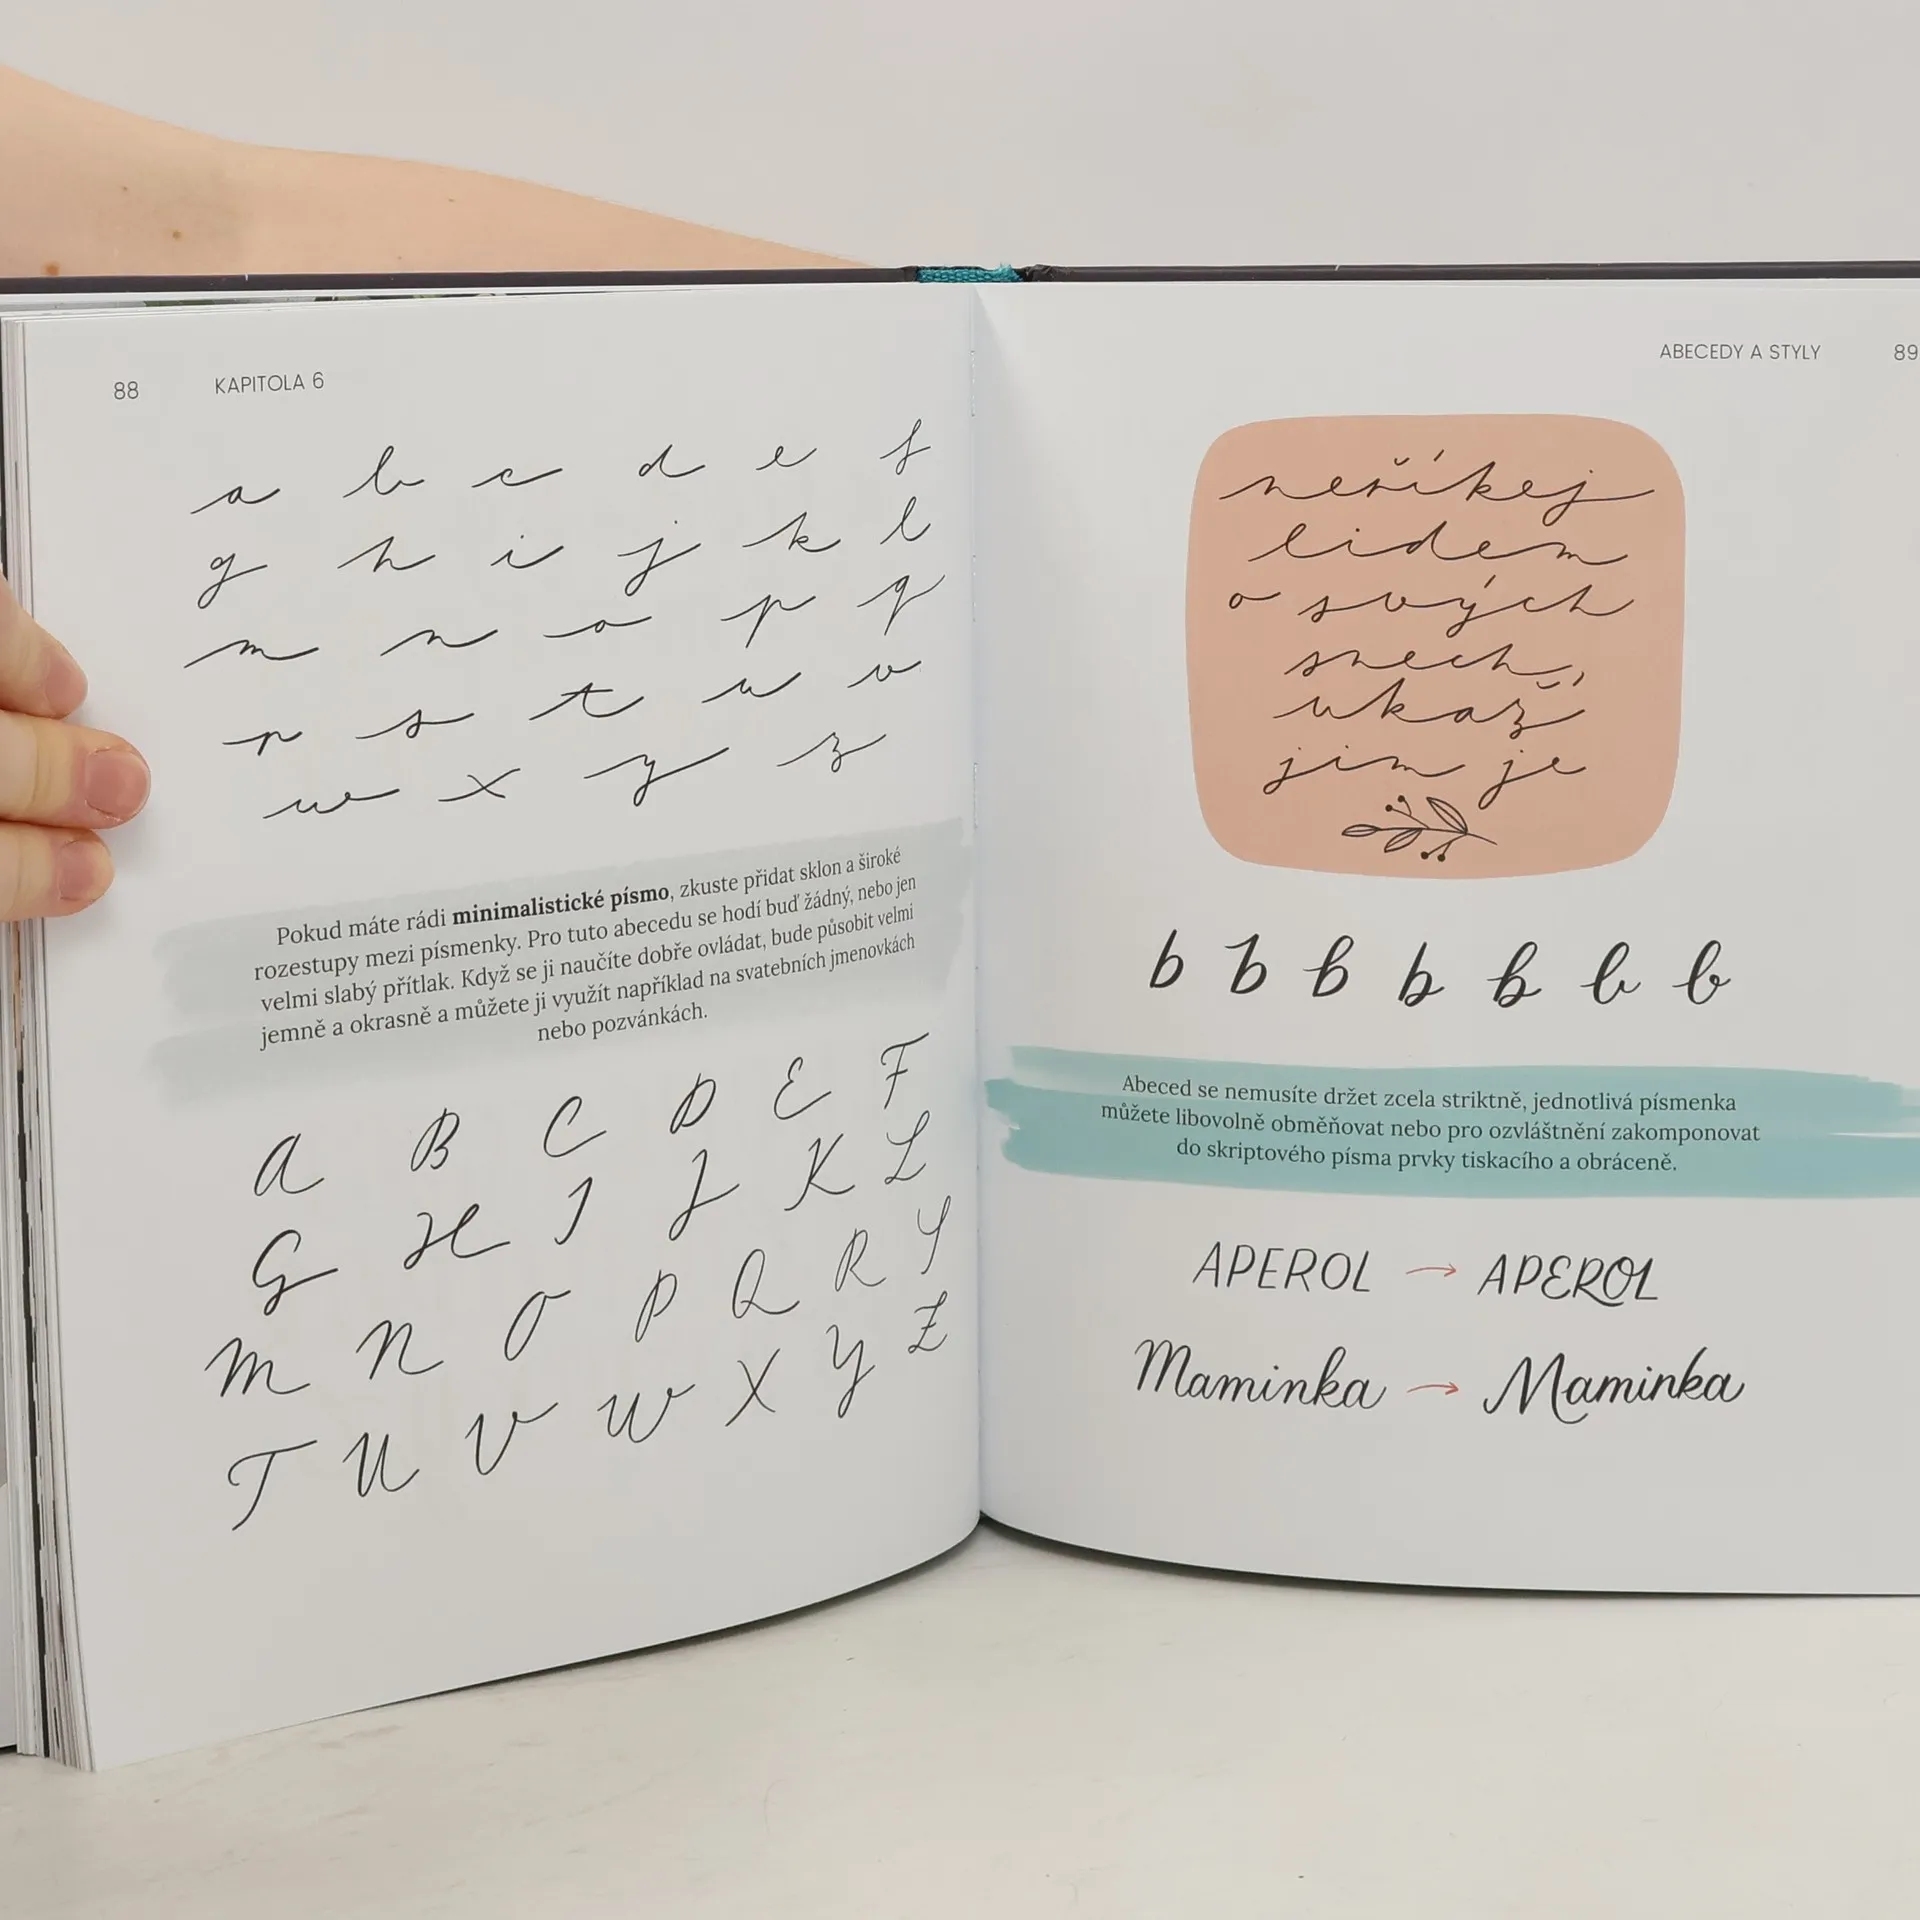 88 KAPITOLA 6
a b c d e f
g h i j k l
m n o p q
r s t u v
w x y z
Pokud máte rádi minimalistické písmo, zkuste přidat sklon a široké
rozestupy mezi písmenky. Pro tuto abecedu se hodí buď žádný, nebo jen
velmi slabý přítlak. Když se ji naučíte dobře ovládat, bude působit velmi
jemně a okrasně a můžete ji využít například na svatebních jmenovkách
nebo pozvánkách.
A B C D E F
G H I J K L
M N O P Q R S
T U V W X Y Z
ABECEDY A STYLY 89
neříkej
lidem
o svých
snech,
ukaž
jim je
b b b b b b b
Abeced se nemusíte držet zcela striktně, jednotlivá písmenka
můžete libovolně obměňovat nebo pro ozvláštnění zakomponovat
do skriptového písma prvky tiskacího a obráceně.
APEROL → APEROL
Maminka → Maminka